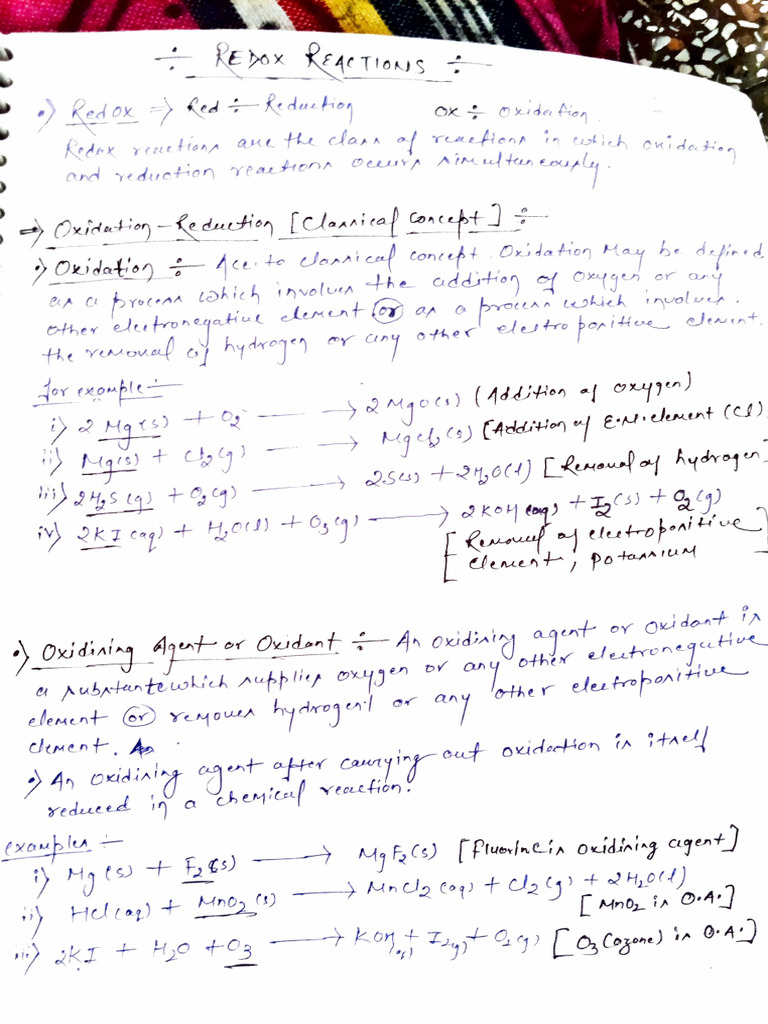 ÷ REDOX REACTIONS ÷
•) Redox => Red ÷ Reduction OX ÷ Oxidation.
Redox reactions are the class of reactions in which oxidation
and reduction reactions occurs simultaneously.
=> Oxidation-Reduction [Classical Concept] ÷
•) Oxidation ÷ Acc. to classical concept. Oxidation May be defined
as a process which involves the addition of oxygen or any
other electronegative element (or) as a process which involves.
the removal of hydrogen or any other electropositive element.
for example :-
i) 2 Mg(s) + O2 → 2 MgO(s) (Addition of oxygen)
ii) Mg(s) + Cl2(g) → MgCl2(s) [Addition of E.N. element (Cl)
iii) 2H2S(g) + O2(g) → 2S(s) + 2H2O(l) [Removal of hydrogen]
iv) 2KI(aq) + H2O(l) + O3(g) → 2KOH(aq) + I2(s) + O2(g)
[Removal of electropositive
element, potassium]
•) Oxidising Agent or Oxidant ÷ An oxidising agent or oxidant is
a substance which supplies oxygen or any other electronegative
element (or) removes hydrogen or any other electropositive
element.
•) An oxidising agent after carrying out oxidation is itself
reduced in a chemical reaction.
examples :-
i) Mg(s) + F2(s) → MgF2(s) [fluorine is oxidising agent]
ii) HCl(aq) + MnO2(s) → MnCl2(aq) + Cl2(g) + 2H2O(l)
[MnO2 is O.A.]
iii) 2KI + H2O + O3 → KOH + I2(g) + O2(g) [O3(ozone) is O.A.]